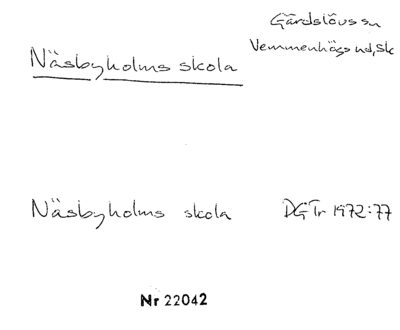 Gärdslövs sn
Vemmenhögs hd, Sk
Näsbyholms skola
Näsbyholms skola DGTr 1972:77
Nr 22042